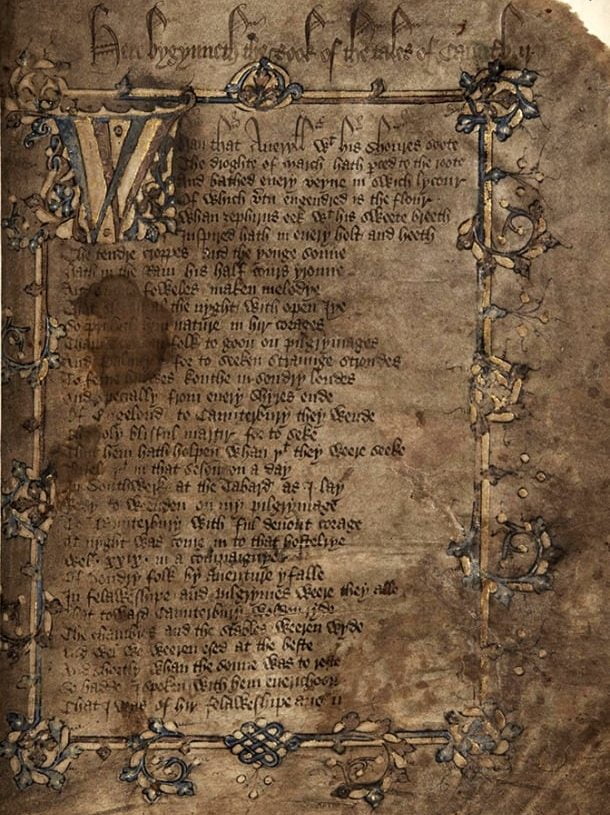 Here bygynneth the Book of the tales of Caunterbury
Whan that Averyll wt his shoures soote
The droghte of march hath pced to the roote
And bathed every veyne in swich lycour
Of which vtu engendred is the flour
Whan zephirus eek wt his sweete breeth
Inspired hath in every holt and heeth
The tendre croppes and the yonge sonne
Hath in the Ram his half cours yronne
foweles maken melodye
al the nyght with open Iye
nature in hir corages
folk to goon on pilgrymages
And for to seeken straunge strondes
To kouthe in sondry londes
And specially from every shyres ende
Of Engelond to Caunterbury they wende
The holy blisful martir for to seke
That hem hath holpen whan yt they weere seeke
in that seson on a day
In Southwerk at the Tabard as I lay
Redy to wenden on my pilgrymage
To Caunterbury with ful devout corage
At nyght was come in to that hostelrye
Wel .xxix. in a compaignye
Of sondry folk by aventure yfalle
In felaweshipe and pilgrymes weere they alle
That toward Caunterbury wolden ryde
The chambres and the stables weeren wyde
And wel we weeren esed at the beste
And shortly whan the sonne was to reste
So hadde I spoken with hem everichoon
That I was of hir felaweshipe